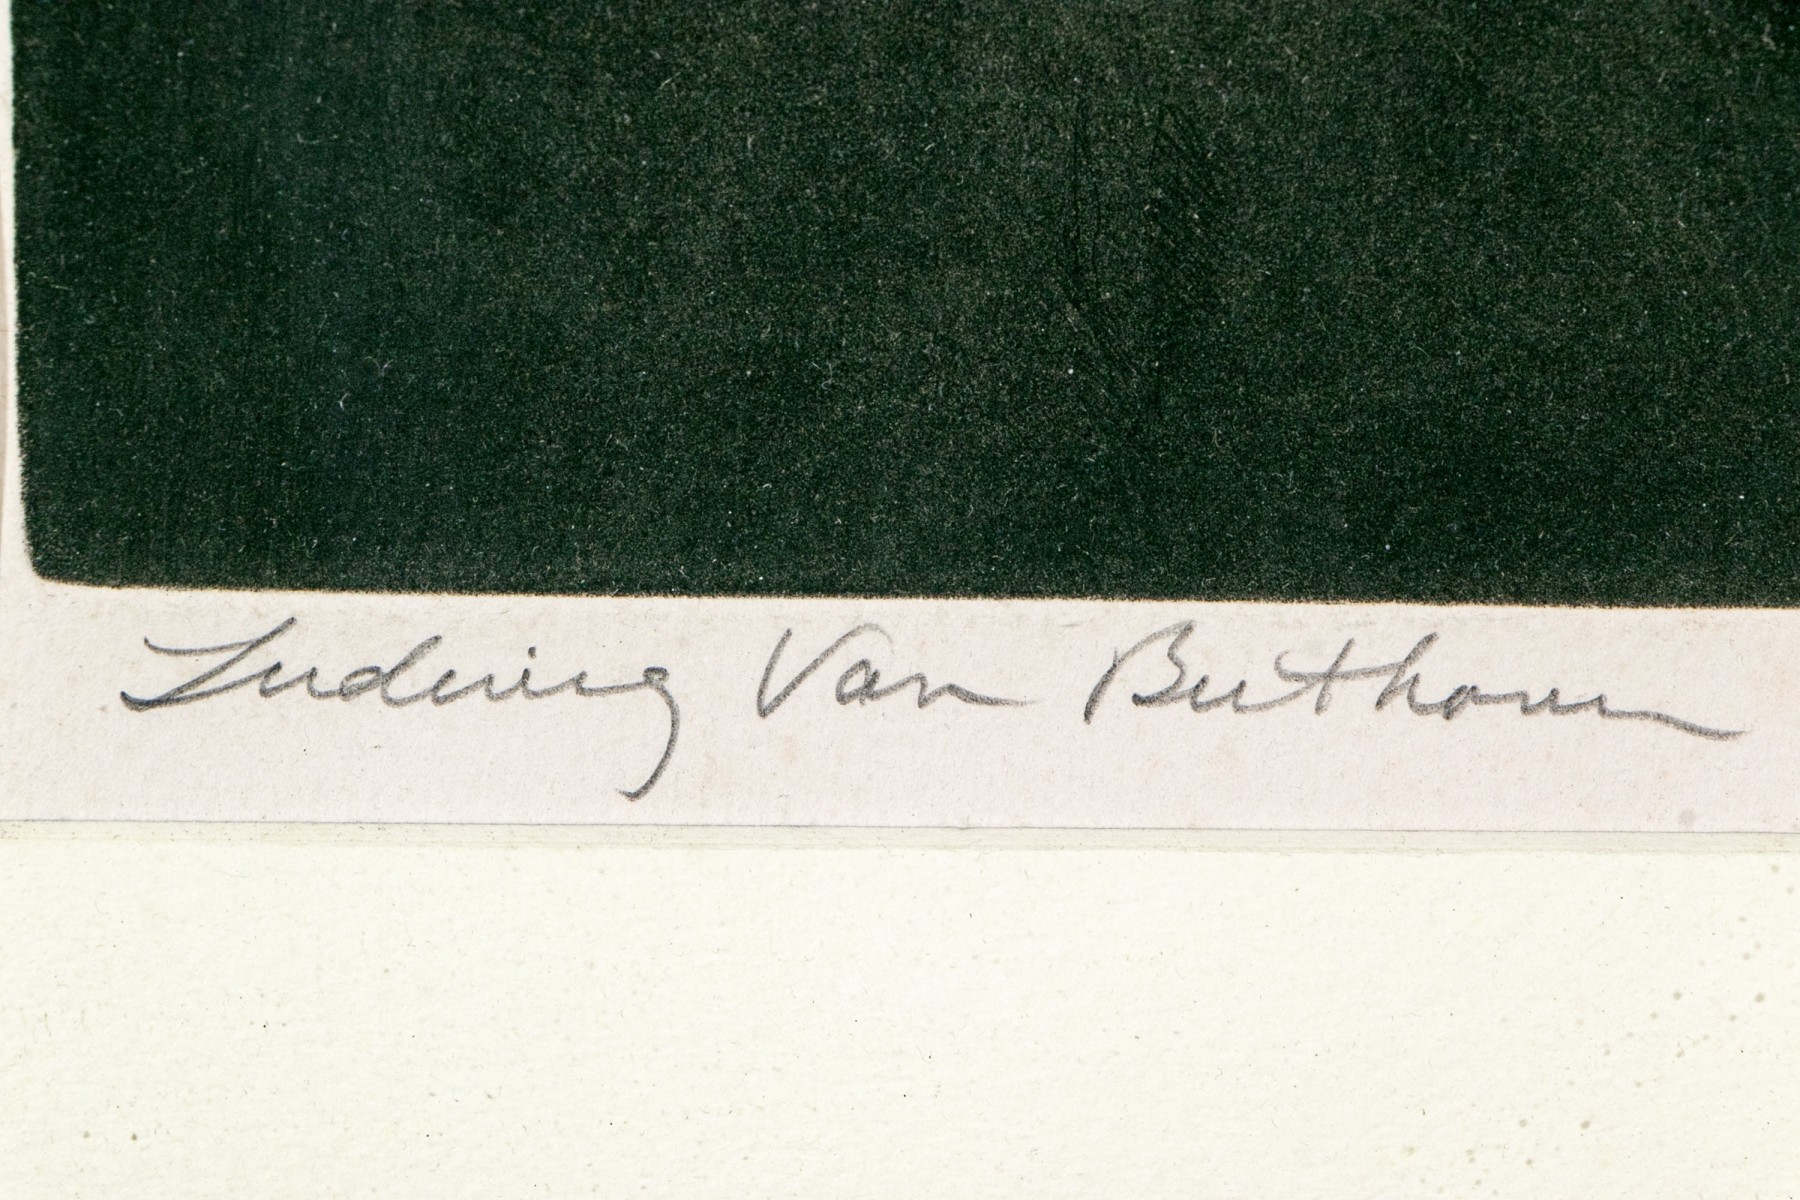 Ludwig Van Beethoven